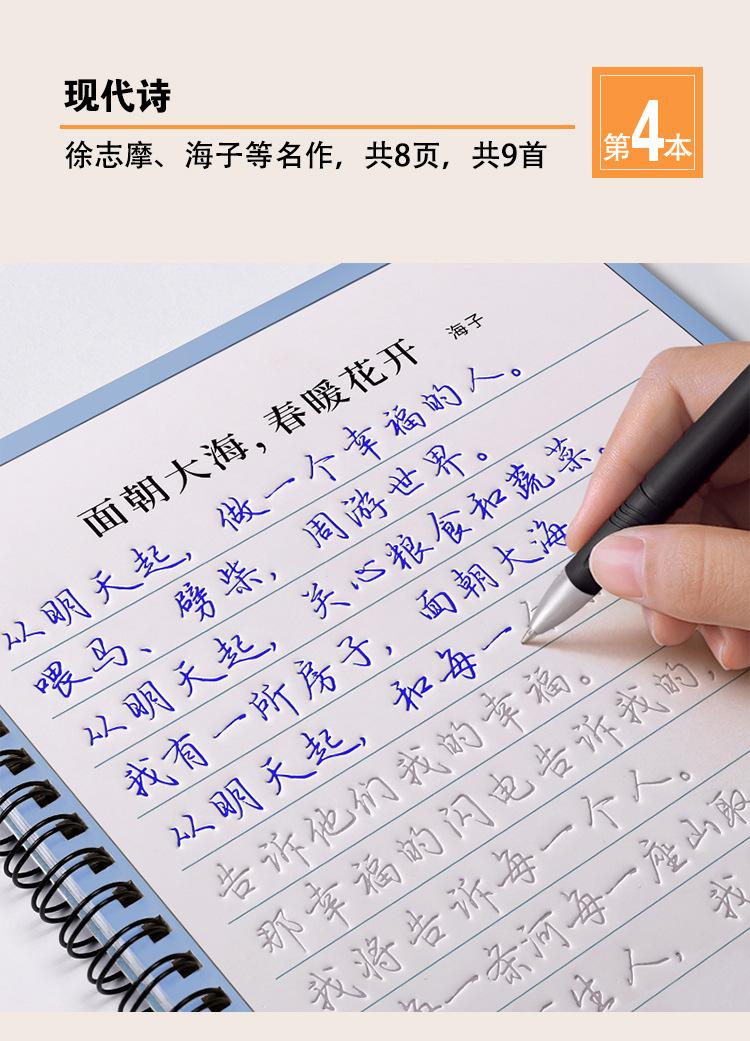 现代诗
徐志摩、海子等名作，共8页，共9首
第4本
面朝大海，春暖花开 海子
从明天起，做一个幸福的人。
喂马、劈柴，周游世界。
从明天起，关心粮食和蔬菜。
我有一所房子，面朝大海
从明天起，和每一
告诉他们我的幸福。
那幸福的闪电告诉我的，
我将告诉每一个人。
一条河每一座山取
生人，我